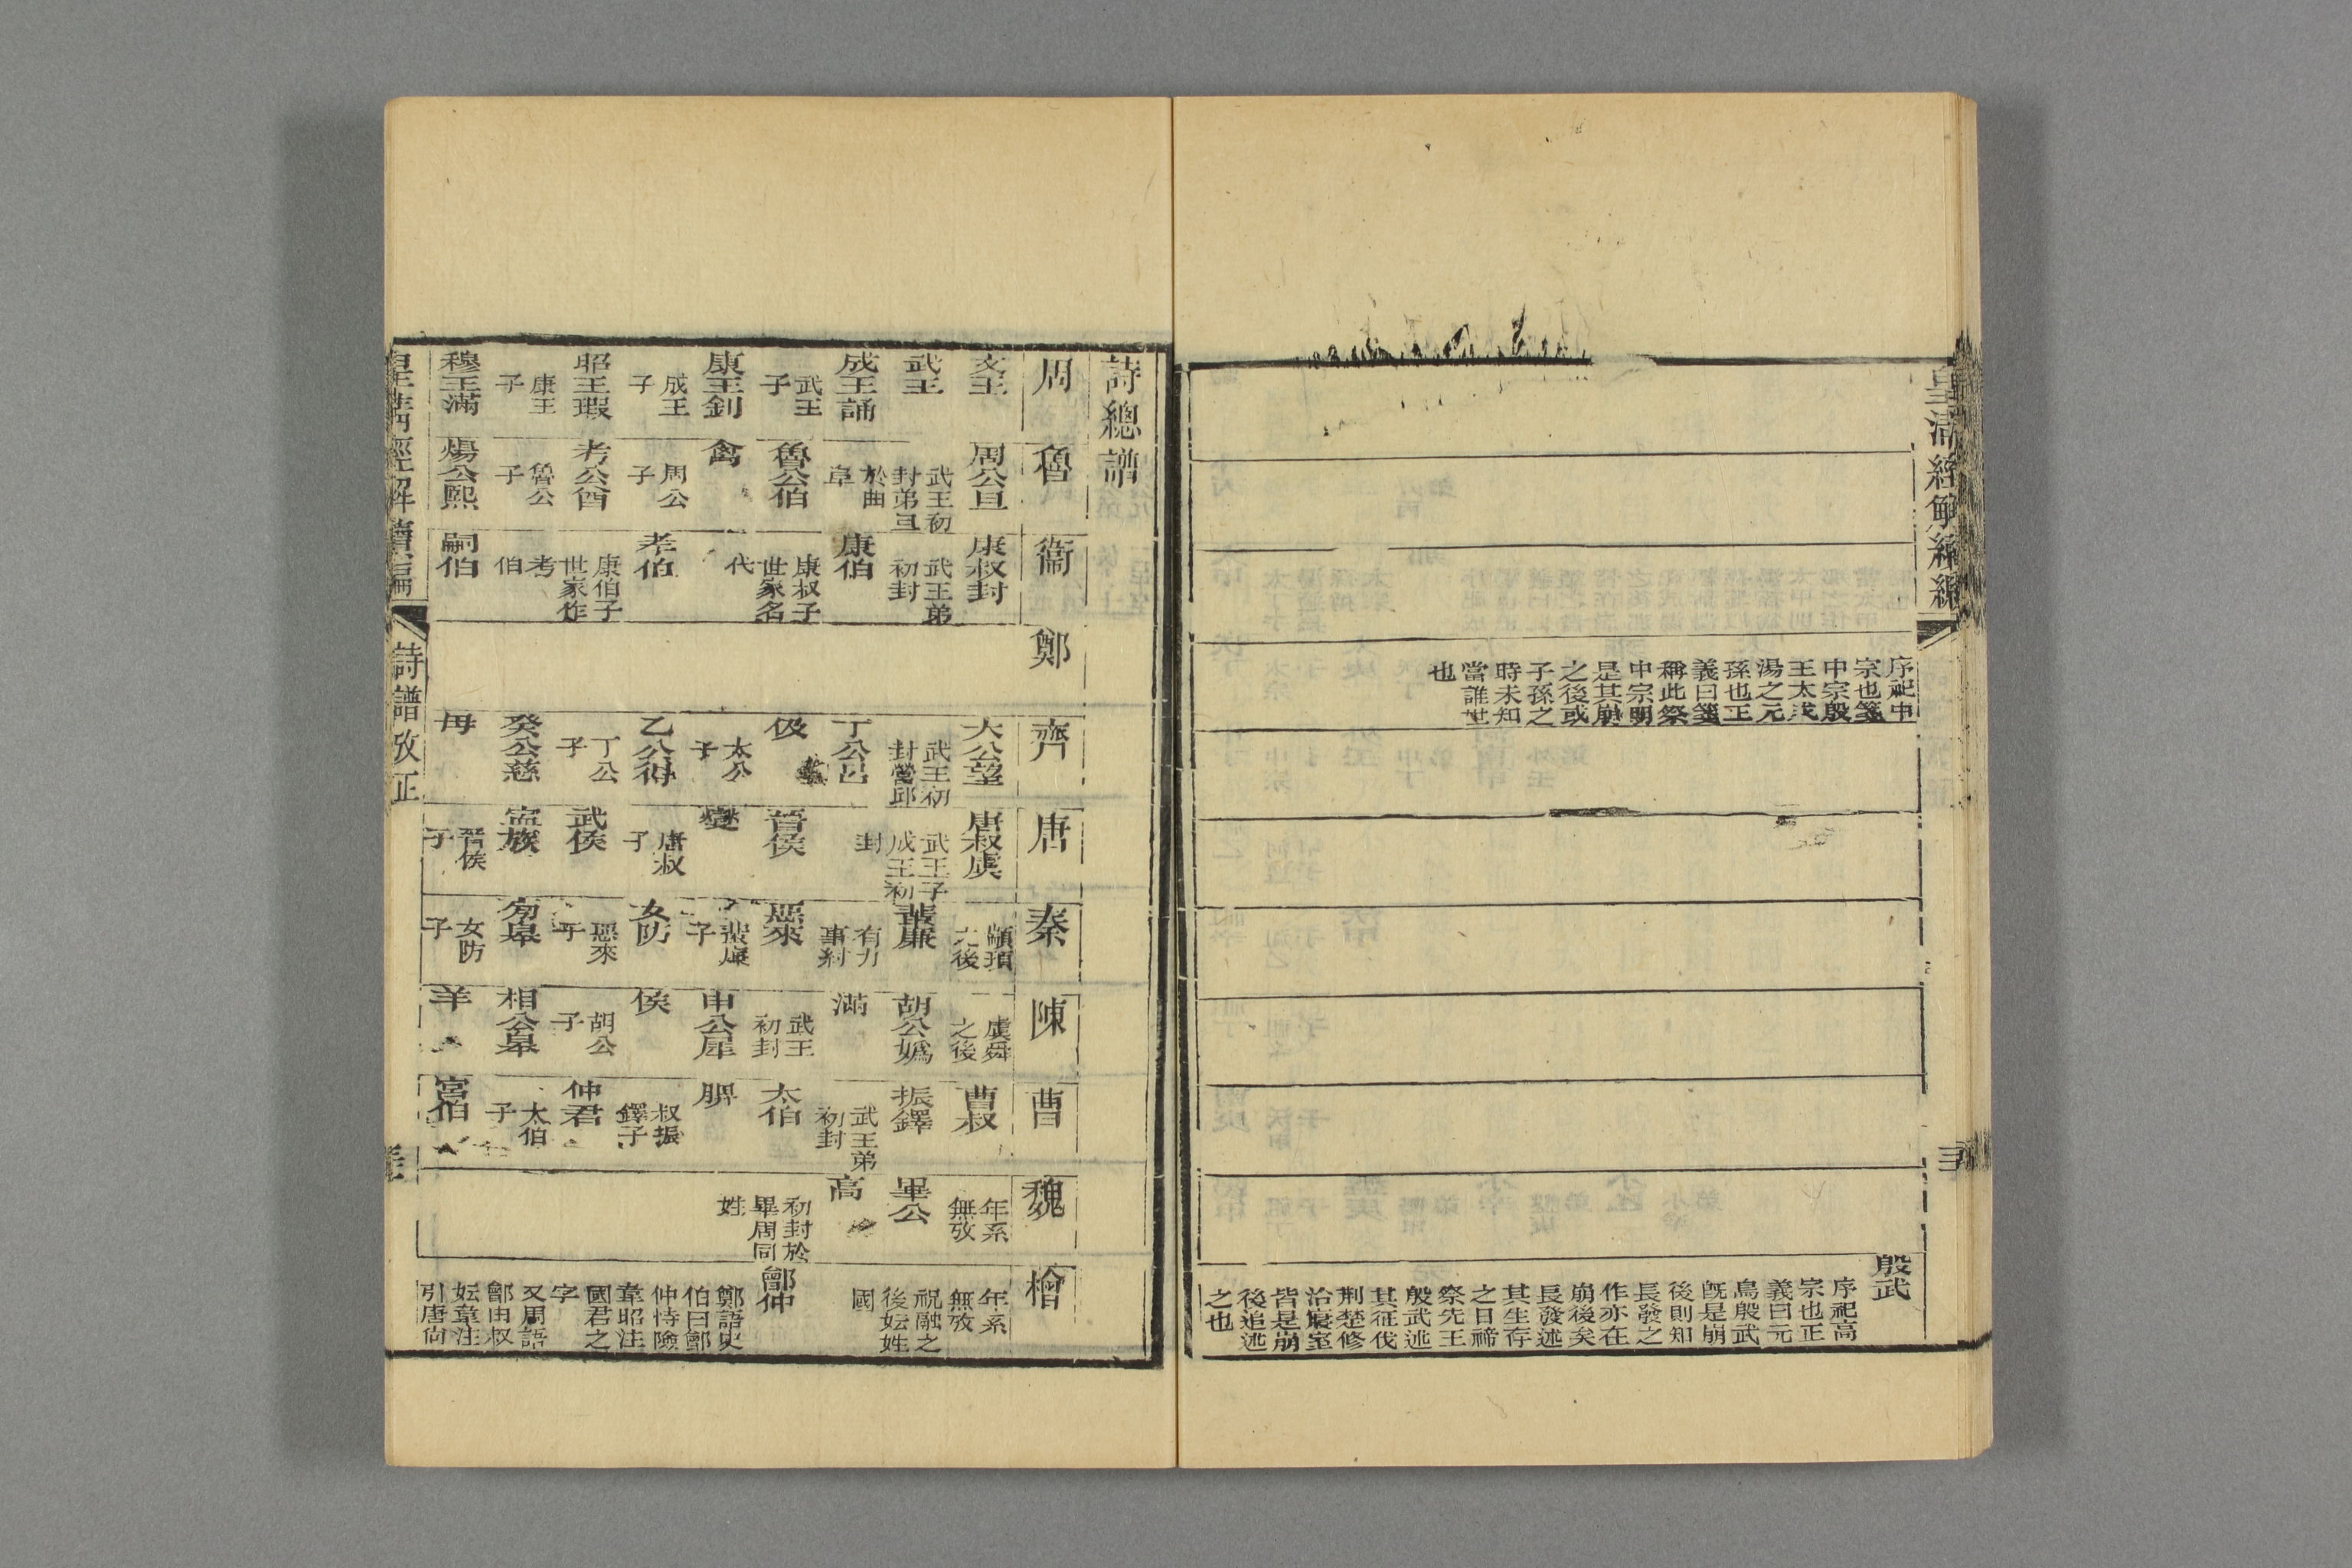 皇清經解續編
序祀中
宗也箋
中宗殷
王太戊
湯之元
孫也正
義曰箋
稱此祭
中宗明
是其崩
之後或
子孫之
時未知
當誰世
也
殷武
序祀高
宗也正
義曰元
鳥殷武
旣是崩
後則知
長發之
作亦在
崩後矣
長發述
其生存
之日禘
祭先王
殷武述
其征伐
荆楚修
治寢室
皆是崩
後追述
之也
詩總譜
周
文王
武王
成王誦
武王
子
康王釗
成王
子
昭王瑕
康王
子
穆王滿
魯
周公旦
武王初
封弟旦
於曲
阜
魯公伯
禽
周公
子
考公酋
魯公
子
煬公熙
衞
康叔封
武王弟
初封
康伯
康叔子
世家名
代
孝伯
康伯子
世家作
考
伯
嗣伯
鄭
齊
大公望
武王初
封營邱
丁公呂
伋
太公
子
乙公得
丁公
子
癸公慈
母
唐
唐叔虞
武王子
成王初
封
晉侯
燮
唐叔
子
武侯
寧族
晉侯
子
秦
顓頊
之後
蜚廉
有力
事紂
惡來
蜚廉
子
女防
惡來
子
旁臯
女防
子
陳
虞舜
之後
胡公嬀
滿
武王
初封
申公犀
侯
胡公
子
相公臯
羊
曹
曹叔
振鐸
武王弟
初封
太伯
脾
叔振
鐸子
仲君
太伯
子
宮伯
魏
年系
無攷
畢公
高
初封於
畢周同
姓
檜
年系
無攷
祝融之
後妘姓
國
鄶仲
鄭語史
伯曰鄶
仲恃險
韋昭注
國君之
字
又周語
鄶由叔
妘韋注
引唐尙
皇淸經解續編
詩譜攷正